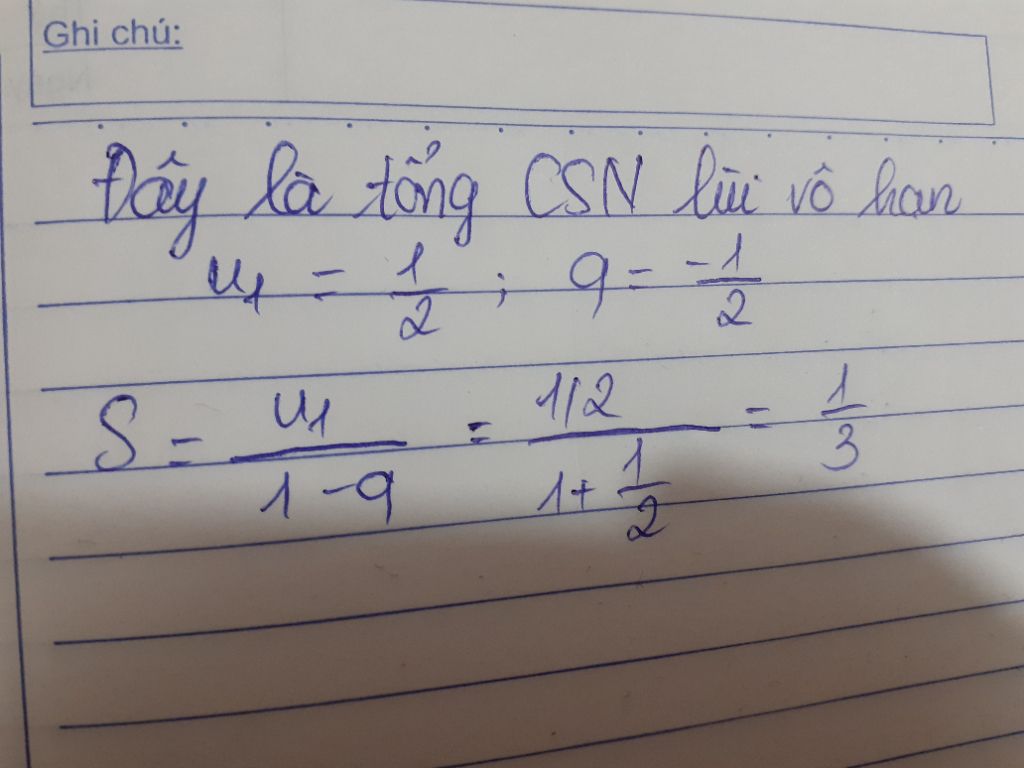 Ghi chú:
Đấy là tổng CSN lùi vô han
u1 = 1/2 ; q = -1/2
S = u1/(1-q) = (1/2)/(1+1/2) = 1/3